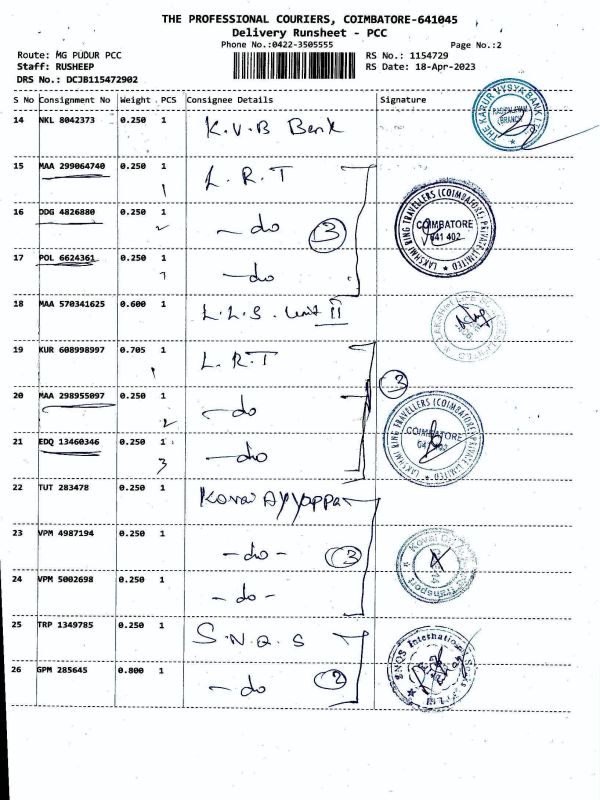 THE PROFESSIONAL COURIERS, COIMBATORE-641045
Delivery Runsheet - PCC
Phone No.:0422-3505555 Page No.:2
Route: MG PUDUR PCC RS No.: 1154729
Staff: RUSHEEP RS Date: 18-Apr-2023
DRS No.: DCJB115472902
S No Consignment No Weight PCS Consignee Details Signature
14 NKL 8042373 0.250 1 K.V.B Bank
THE KARUR VYSYA BANK LTD
BRANCH
15 MAA 299064740 0.250 1 L.R.T
1
16 DDG 4826880 0.250 1 - do 3
2
LAKSHMI RING TRAVELLERS (COIMBATORE) PRIVATE LIMITED
COIMBATORE
641 402
17 POL 6624361 0.250 1 - do
18 MAA 570341625 0.600 1 L.L.S. Unit II
19 KUR 608998997 0.705 1 L.R.T
1
3
20 MAA 298955097 0.250 1 - do
2
LAKSHMI RING TRAVELLERS (COIMBATORE) PRIVATE LIMITED
COIMBATORE
21 EDQ 13460346 0.250 1 - do
3
22 TUT 283478 0.250 1 Kovai Ayyappa
23 VPM 4987194 0.250 1 - do - 3
24 VPM 5002698 0.250 1 - do -
25 TRP 1349785 0.250 1 S.N.Q.S
SNQS International Socks
26 GPM 285645 0.800 1 - do 2